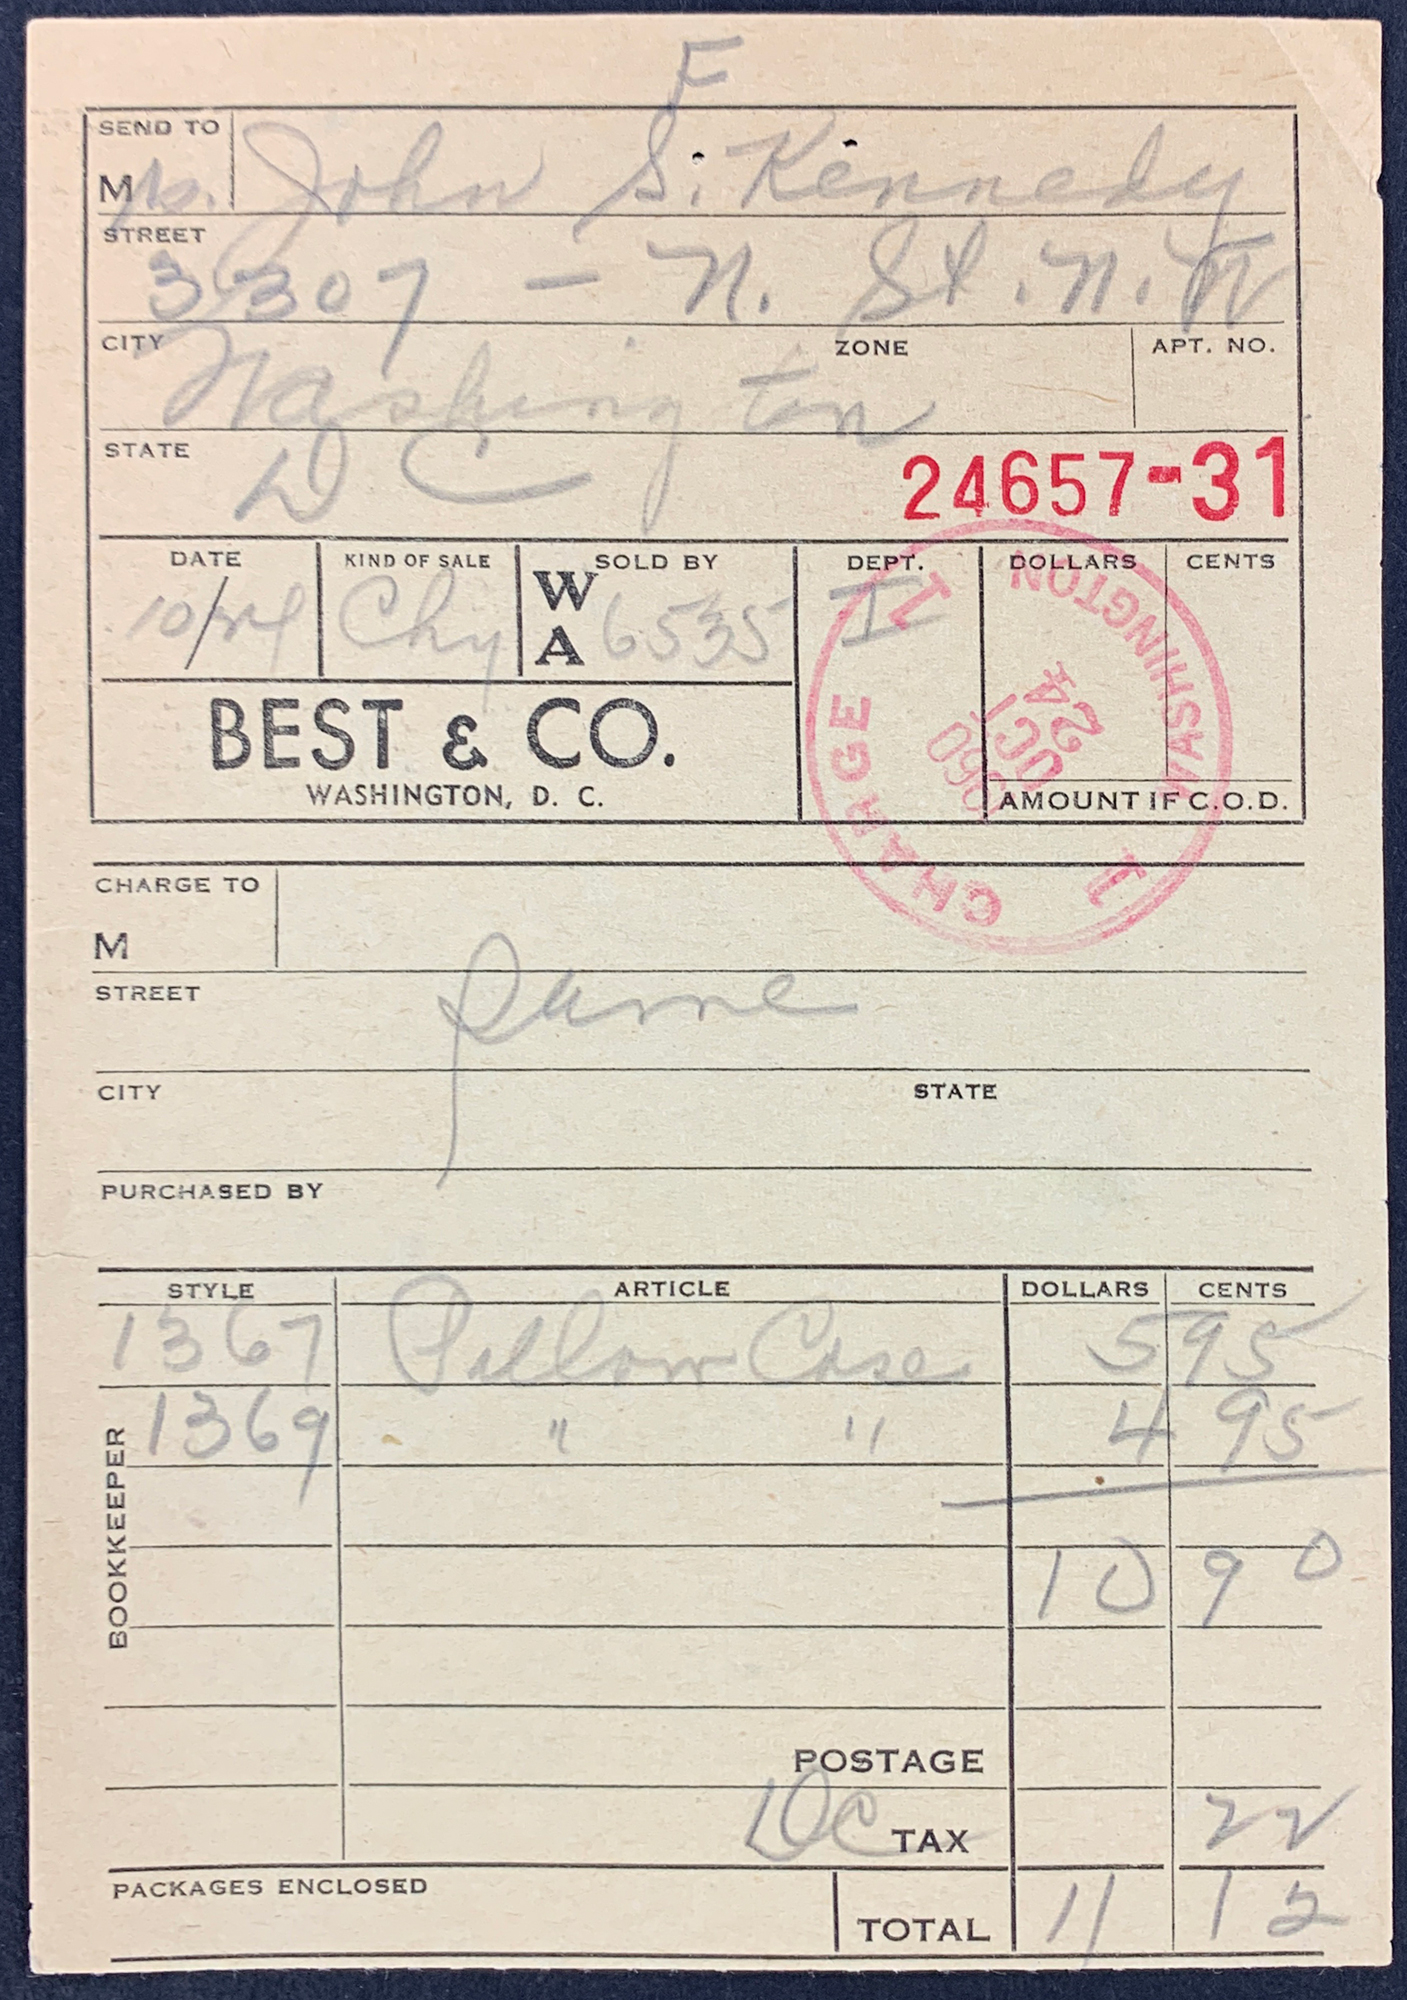 F
SEND TO
Mrs. John S. Kennedy
STREET
3307 - N. St. N.W
CITY ZONE APT. NO.
Washington
STATE
D C
24657-31
DATE KIND OF SALE SOLD BY DEPT. DOLLARS CENTS
10/24 Chg W A 6535 I
1 WASHINGTON 1 CHARGE
OCT 24 A
1960
BEST & CO.
WASHINGTON, D. C.
AMOUNT IF C.O.D.
CHARGE TO
M
STREET
Same
CITY STATE
PURCHASED BY
STYLE ARTICLE DOLLARS CENTS
1367 Pillow Case 5 95
1369 " " 4 95
BOOKKEEPER
10 90
POSTAGE
DC TAX 22
PACKAGES ENCLOSED
TOTAL 11 12